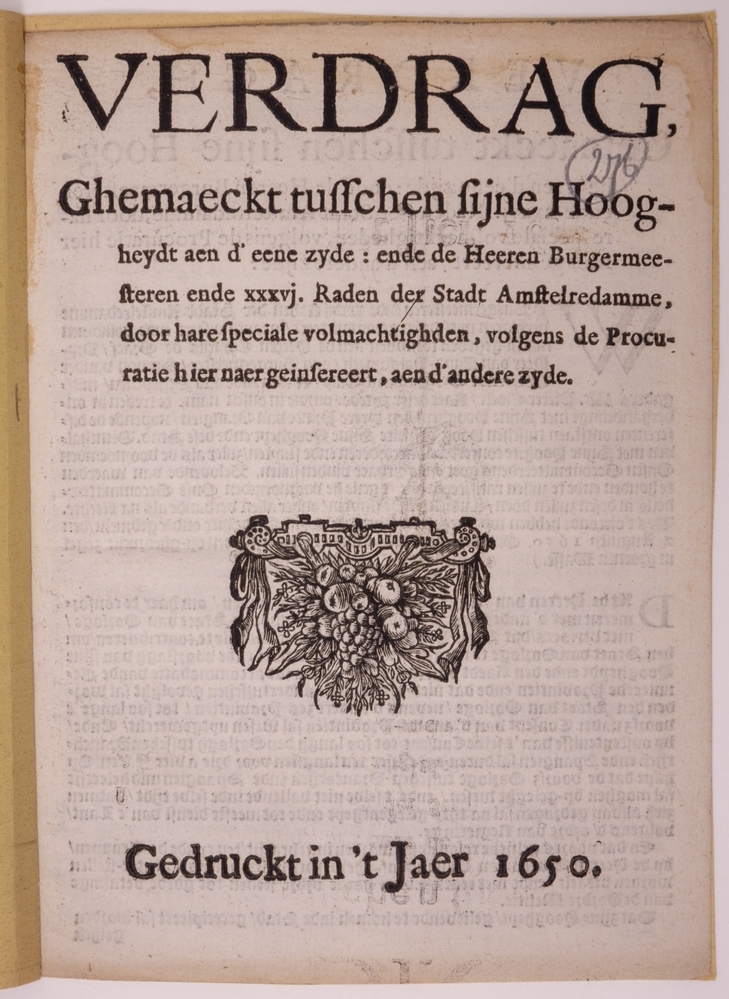 VERDRAG,
276
Ghemaeckt tuſſchen ſijne Hoog-
heydt aen d' eene zyde : ende de Heeren Burgermee-
ſteren ende xxxvj. Raden der Stadt Amſtelredamme,
door hare ſpeciale volmachtighden, volgens de Procu-
ratie hier naer geinſereert, aen d'andere zyde.
Gedruckt in 't Jaer 1650.